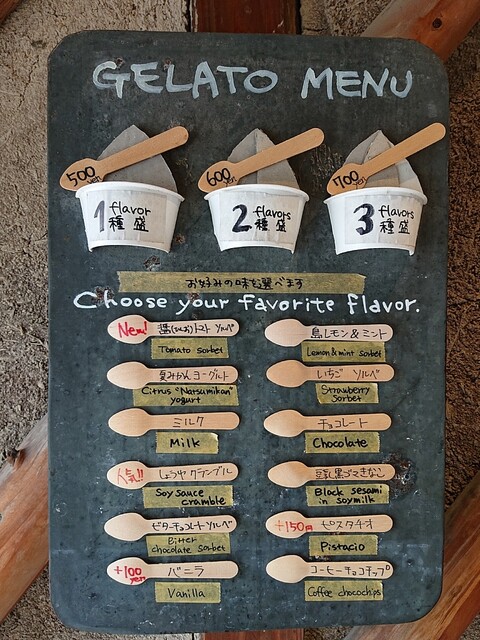 GELATO MENU
500 yen
600 yen
700 yen
1 flavor
種盛
2 flavors
種盛
3 flavors
種盛
お好みの味を選べます
Choose your favorite flavor.
New! トマト ソルベ
Tomato sorbet
島レモン&ミント
Lemon&mint sorbet
夏みかんヨーグルト
Citrus "Natsumikan"
yogurt
いちご ソルベ
Strawberry
sorbet
ミルク
Milk
チョコレート
Chocolate
人気!! しょうゆ クランブル
Soy sauce
cramble
豆乳黒ゴマきなこ
Black sesami
in soymilk
ビターチョコレートソルベ
Bitter
chocolate sorbet
+150円 ピスタチオ
Pistacio
+100 yen バニラ
Vanilla
コーヒーチョコチップ
Coffee chocochips